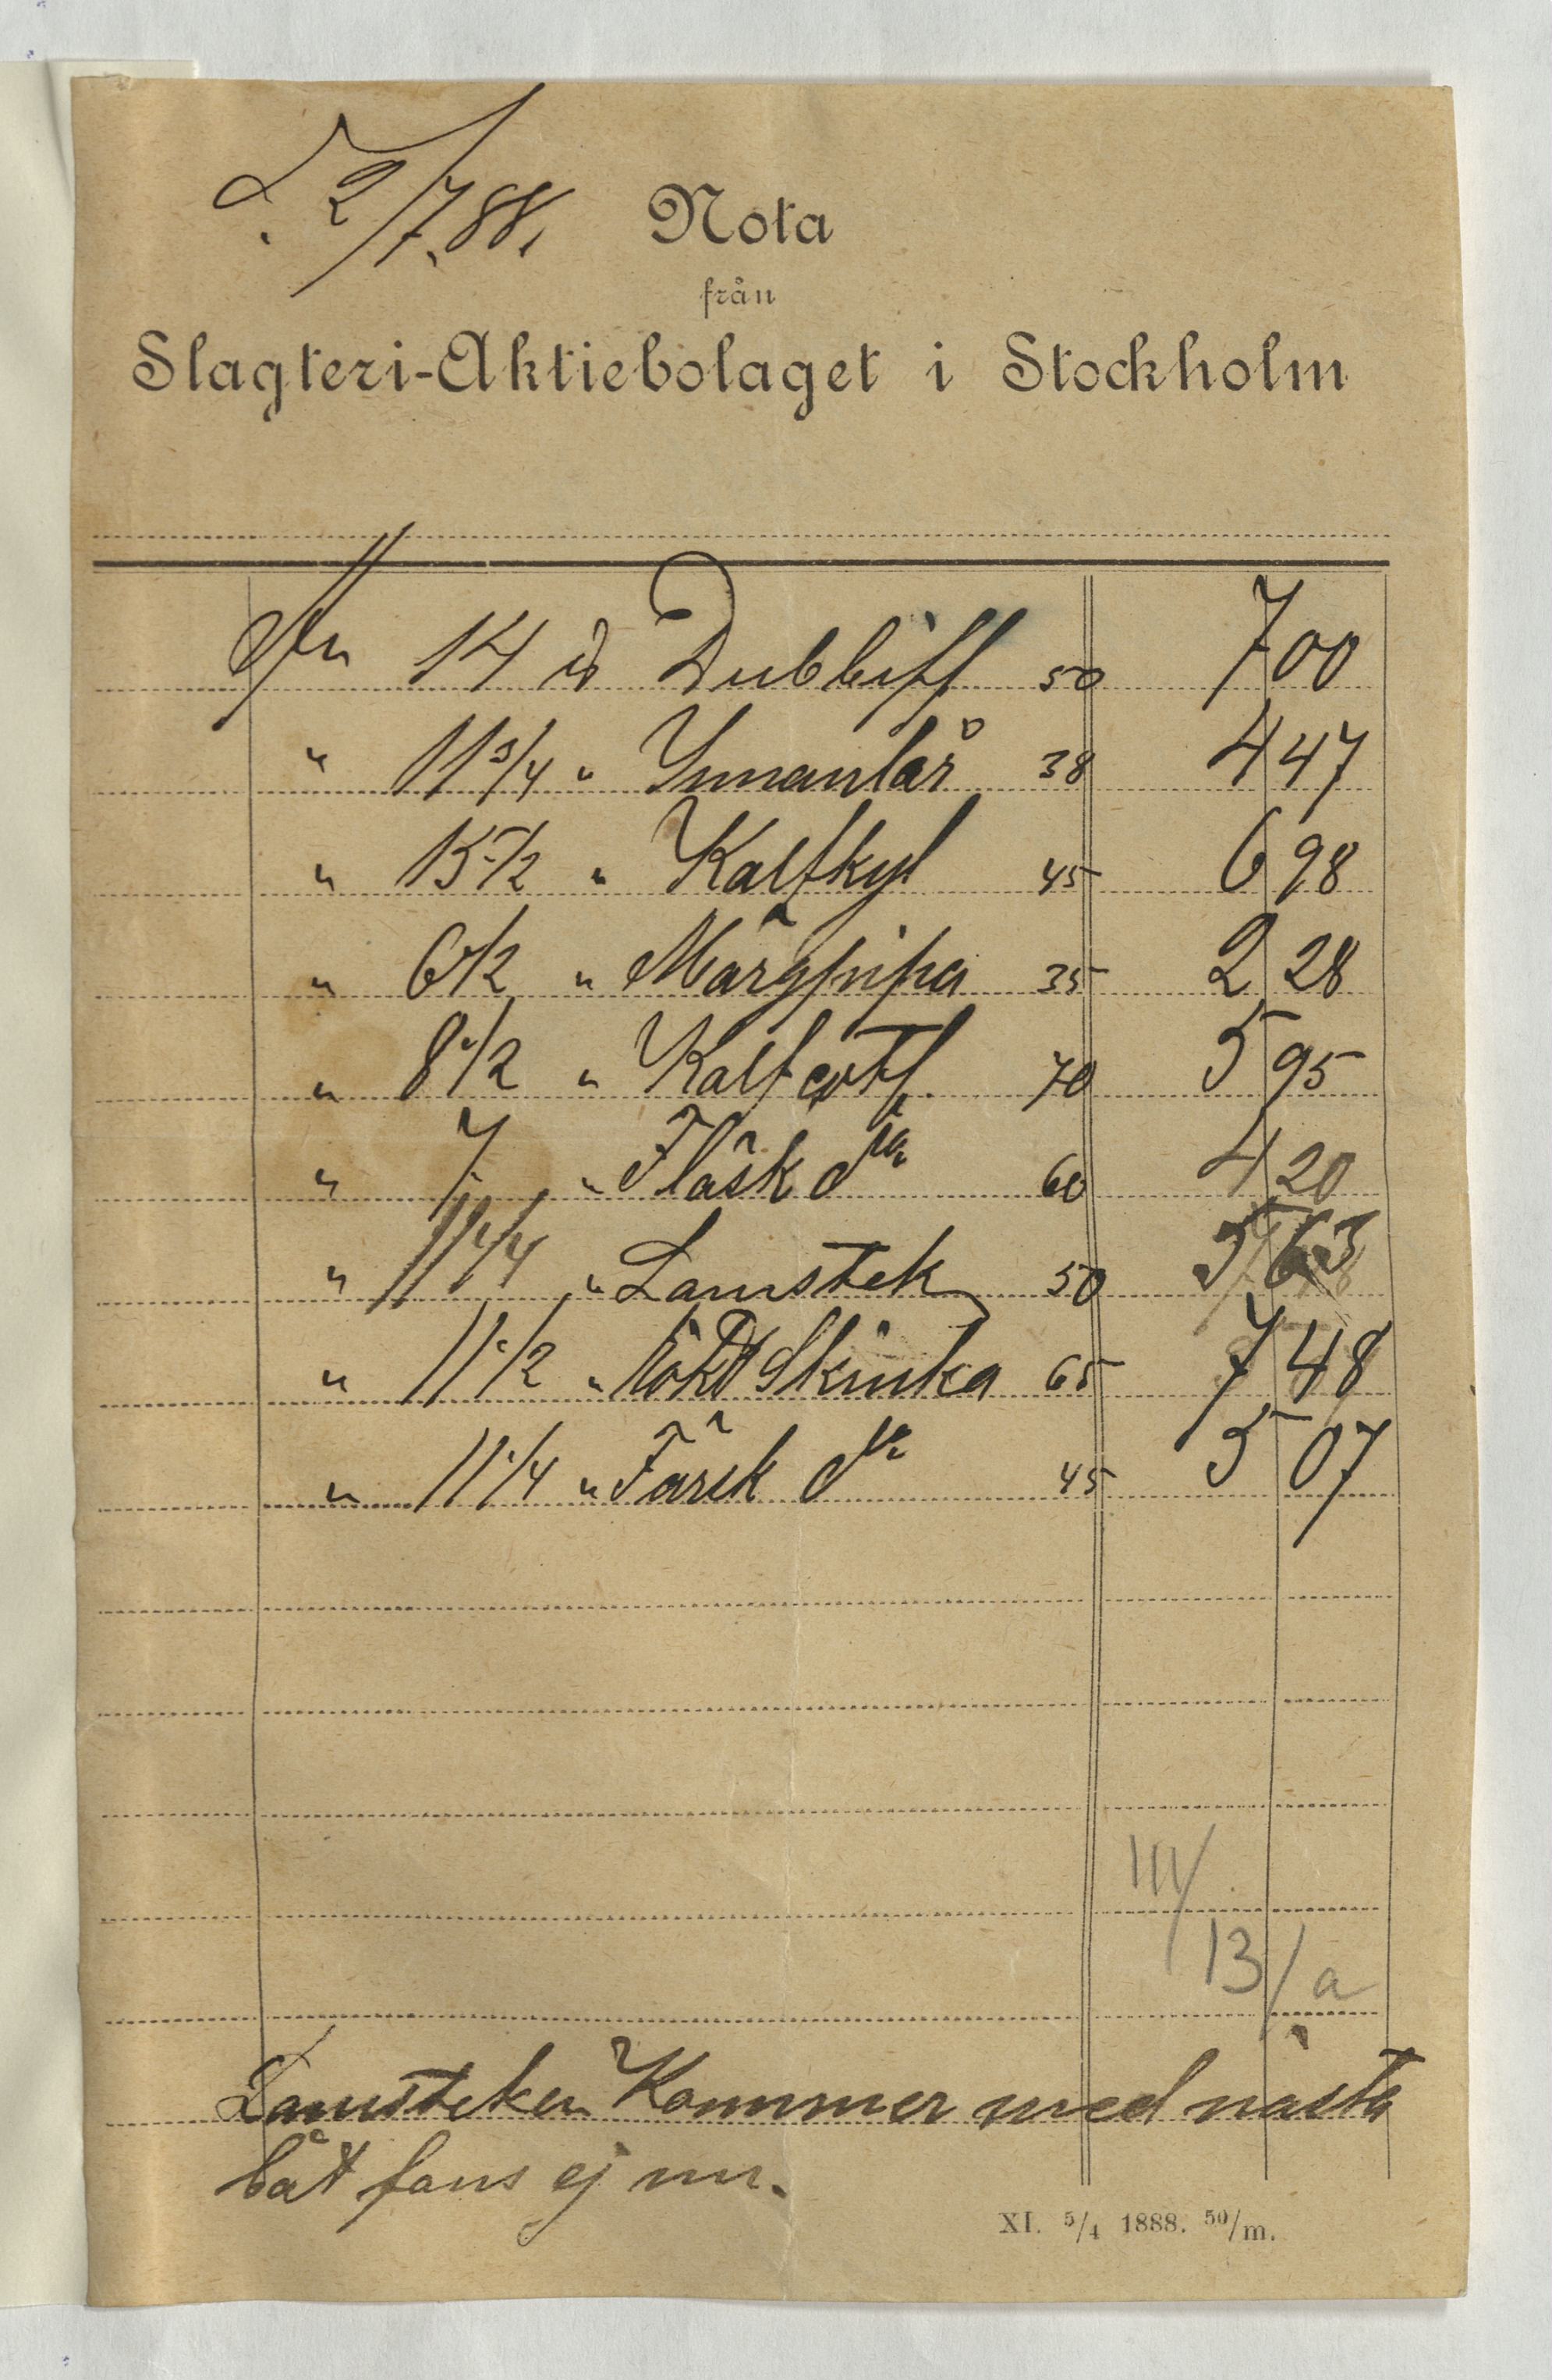 d. 2/7.88.
Nota
från
Slagteri-Aktiebolaget i Stockholm
14 ℔ Dubbiff 50 7 00
" 11 3/4 " Innanlår 38 4 47
" 15 1/2 " Kalfkyl 45 6 98
" 6 1/2 " Märgpipa 35 2 28
" 8 1/2 " Kalfcotl. 70 5 95
" 7. " Fläsk d:o 60 4 20
" 11 1/4 " Lamstek 50 5 63
" 11 1/2 " rökt Skinka 65 7 48
" 11 1/4 " Färsk d:o 45 5 07
III/
13/a
Lamsteken Kommer med nästa
båt fans ej nu.
XI. 5/4 1888. 50/m.